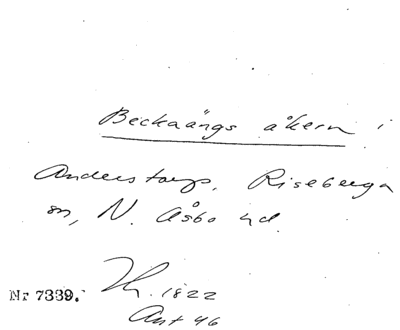 Beckaängs åkern i
Anderstorp, Riseberga
sn, N. Åsbo hd.
Nr 7339.
1822
Ant 46